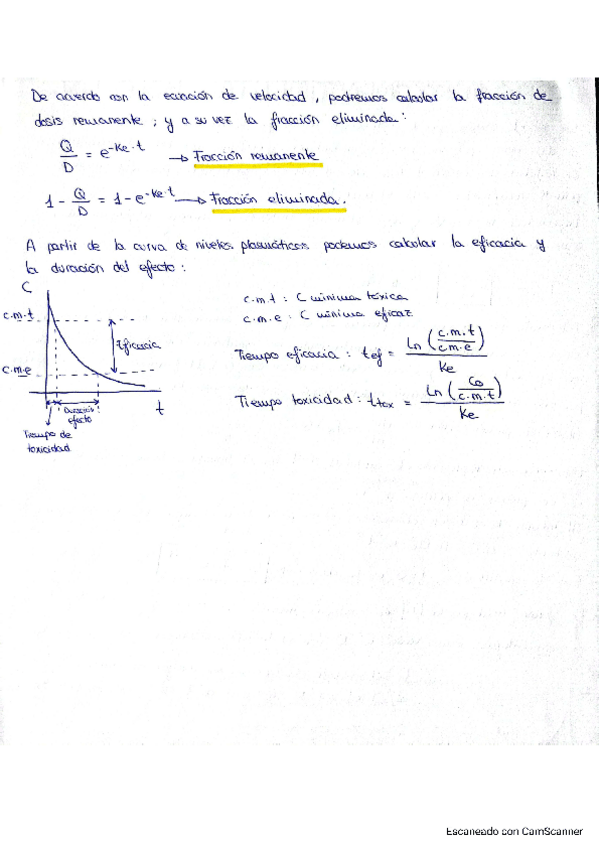 De acuerdo con la ecuación de velocidad, podremos calcular la fracción de
dosis remanente; y a su vez la fracción eliminada:
Q/D = e^-Ke·t → Fracción remanente
1 - Q/D = 1 - e^-Ke·t → Fracción eliminada.
A partir de la curva de niveles plasmáticos podemos calcular la eficacia y
la duración del efecto:
C
c.m.t
c.m.e
Eficacia
Duración
efecto
t
Tiempo de
toxicidad
c.m.t : C mínima tóxica
c.m.e : C mínima eficaz
Tiempo eficacia : tef = Ln (c.m.t/c.m.e) / Ke
Tiempo toxicidad : ttox = Ln (Co/c.m.t) / Ke
Escaneado con CamScanner